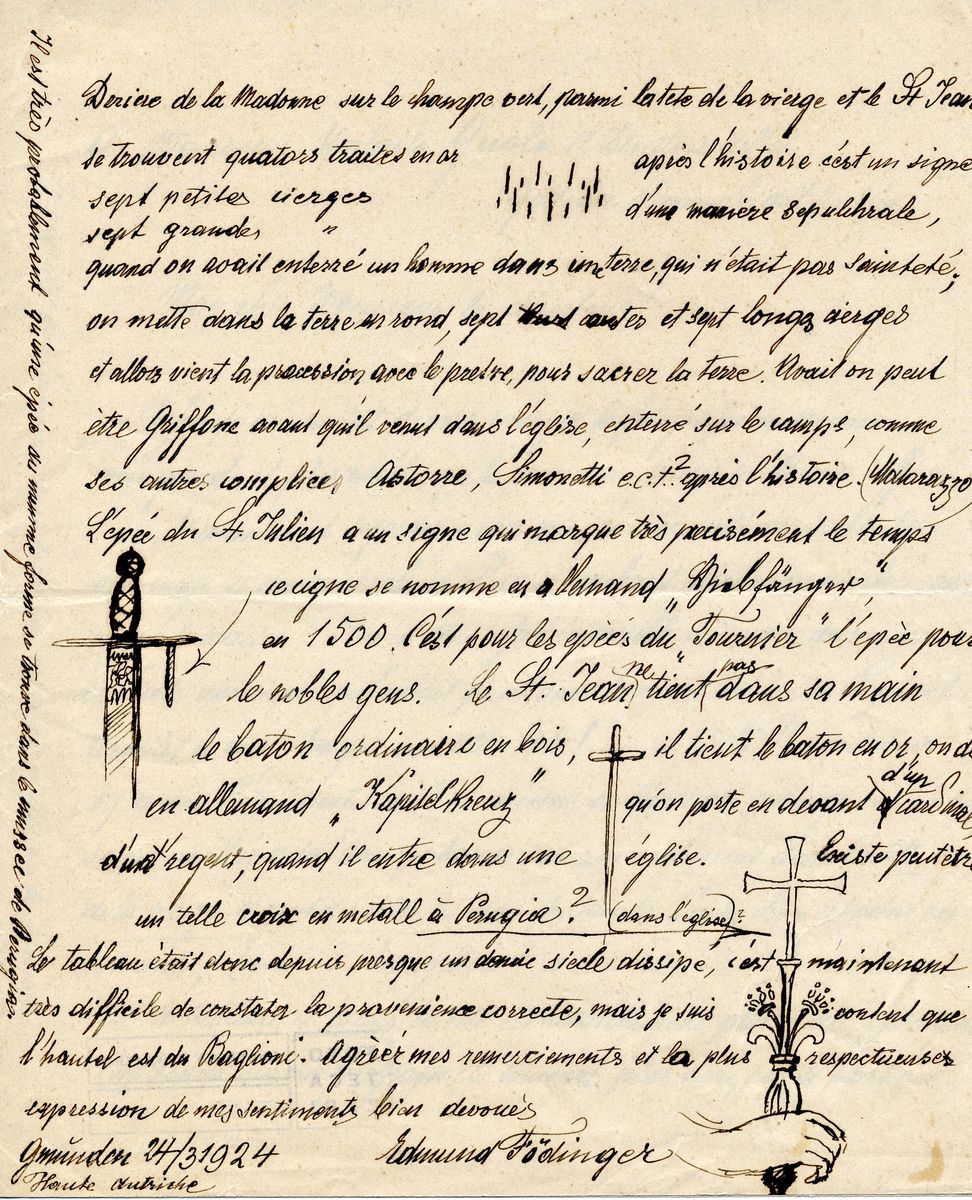 Deriere de la Madonne sur le champe vert, parmi la tete de la vierge et le St Jean
se trouvent quators traites en or
sept petites cierges
sept grandes "
après l'histoire c'est un signe
d'une manière sepulchrale,
quand on avait enterré un homme dans une terre, qui n'était pas sainteté,
on mette dans la terre en rond, sept et sept longs cierges
et allors vient la procession avec le pretre, pour sacrer la terre. Avait on peut
être Griffone avant qu'il venut dans l'église, enterré sur le camps, comme
ses autres complices Astorre, Simonetti e.c.t.? après l'histoire. (Matarazzo
L'epée du St. Julien a un signe qui marque très precisément le temps
ce cigne se nomme en allemand „Diebfänger",
en 1500. C'est pour les epées du „Tournier" l'epée pour
le nobles gens. Le St. Jean ne tient pas dans sa main
le baton ordinaire en bois, il tient le baton en or, on d
en allemand „Kapitelkreuz" qu'on porte en devant d'un cardinal
regent, quand il entre dans une église. Existe peutêtr
un telle croix en metall à Perugia? (dans l'eglise)?
Le tableau était donc depuis presque un demie siecle dissipe, c'est maintenant
très difficile de constater la provenience correcte, mais je suis content que
l'hautel est du Baglioni. Agréer mes remerciements et la plus respectueuses
expression de mes sentiments bien devoués
Gmünden 24/3 1924 Edmund Födinger
Haute Autriche
Il est très probablement qu'une épée du meme forme se trouve dans le musee de Perugia.